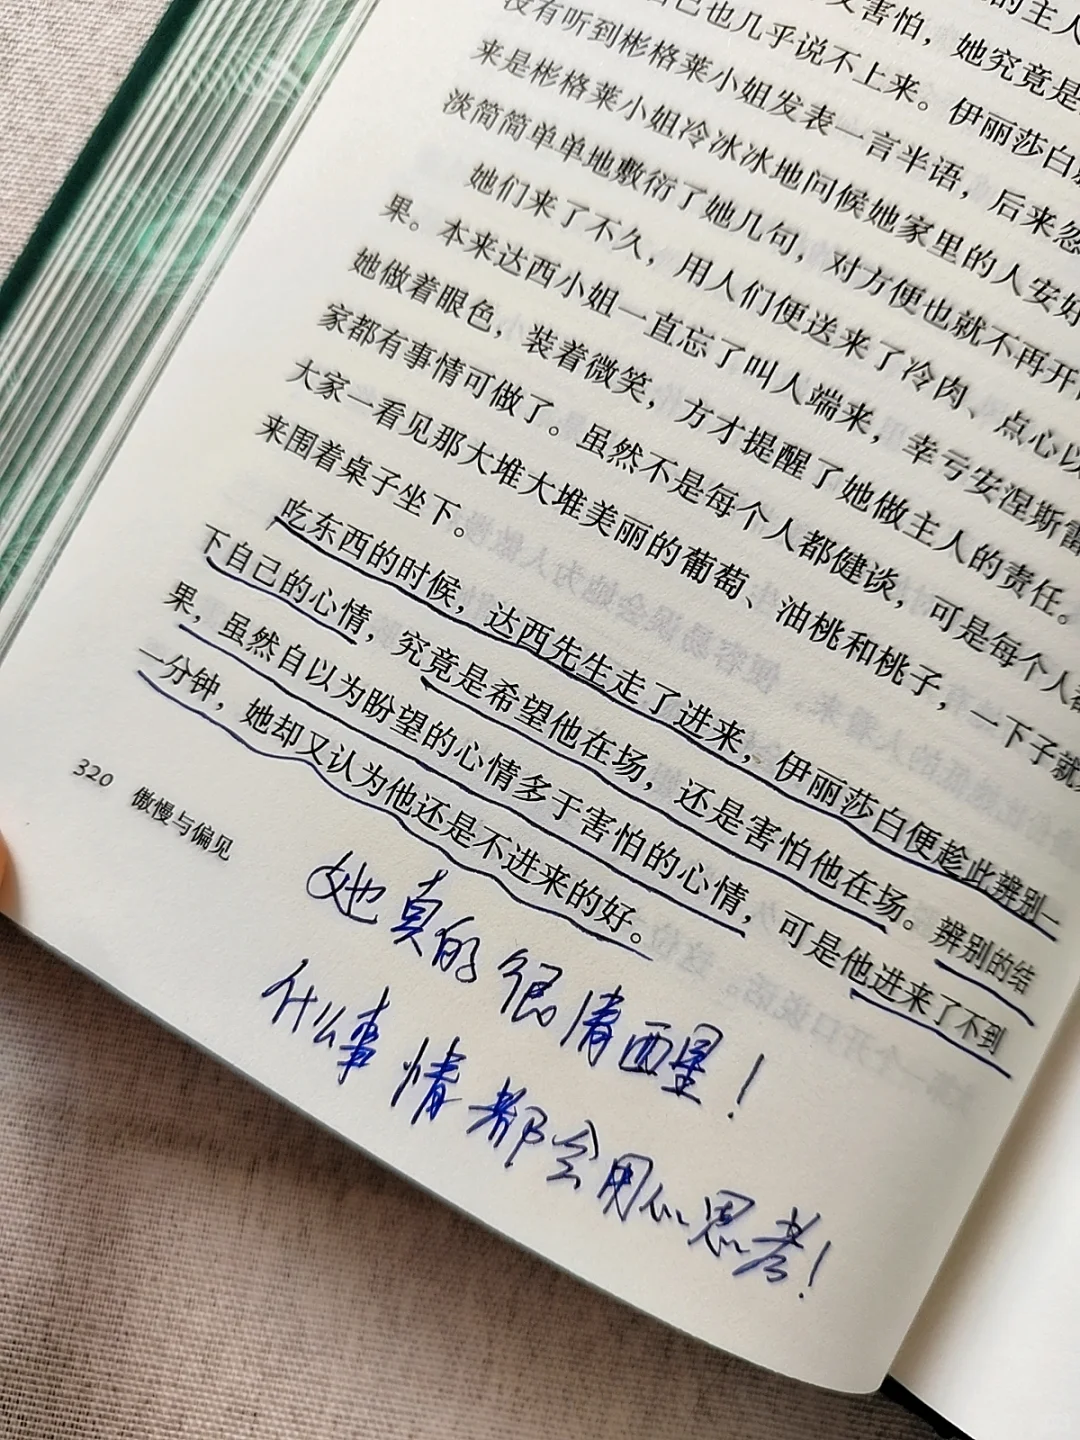 又害怕，她究竟是
己也几乎说不上来。伊丽莎白
没有听到彬格莱小姐发表一言半语，后来忽
来是彬格莱小姐冷冰冰地问候她家里的人安好
淡简简单单地敷衍了她几句，对方便也就不再开
她们来了不久，用人们便送来了冷肉、点心以
果。本来达西小姐一直忘了叫人端来，幸亏安涅斯雷
她做着眼色，装着微笑，方才提醒了她做主人的责任。
家都有事情可做了。虽然不是每个人都健谈，可是每个人都
大家一看见那大堆大堆美丽的葡萄、油桃和桃子，一下子就
来围着桌子坐下。
吃东西的时候，达西先生走了进来，伊丽莎白便趁此辨别一
下自己的心情，究竟是希望他在场，还是害怕他在场。辨别的结
果，虽然自以为盼望的心情多于害怕的心情，可是他进来了不到
一分钟，她却又认为他还是不进来的好。
320 傲慢与偏见
她真的很清醒！
什么事情都会用心思考！